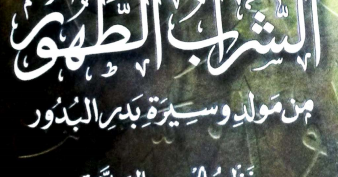 الشَّرَابُ الطَّهُور
مِن مَولِدِ وسِيرَةِ بَدرِ البُدُور